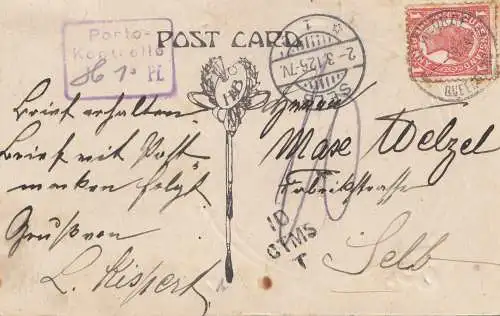 Porto-
Kontrolle
POST CARD
2-3.12.5-7N.
Brief erhalten.
Brief mit Post
marken folgt
Gruß von
L. Kispert
Herrn
Max Welzel
Fabrikstrasse
Selb
10
CTMS
T